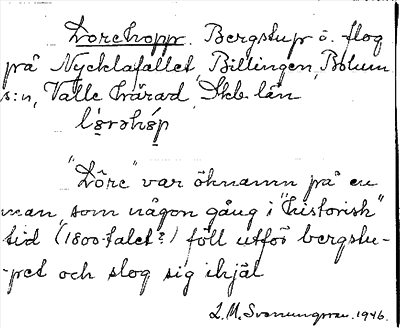 Dorehopp. Bergstup ö. flog
på Nycklafallet, Billingen, Bolum
s:n, Valle härad, Skb. län
"Döre" var öknamn på en
man, som någon gång i "historisk"
tid (1800-talet?) föll utför bergstu-
-pet och slog sig ihjäl
1946.